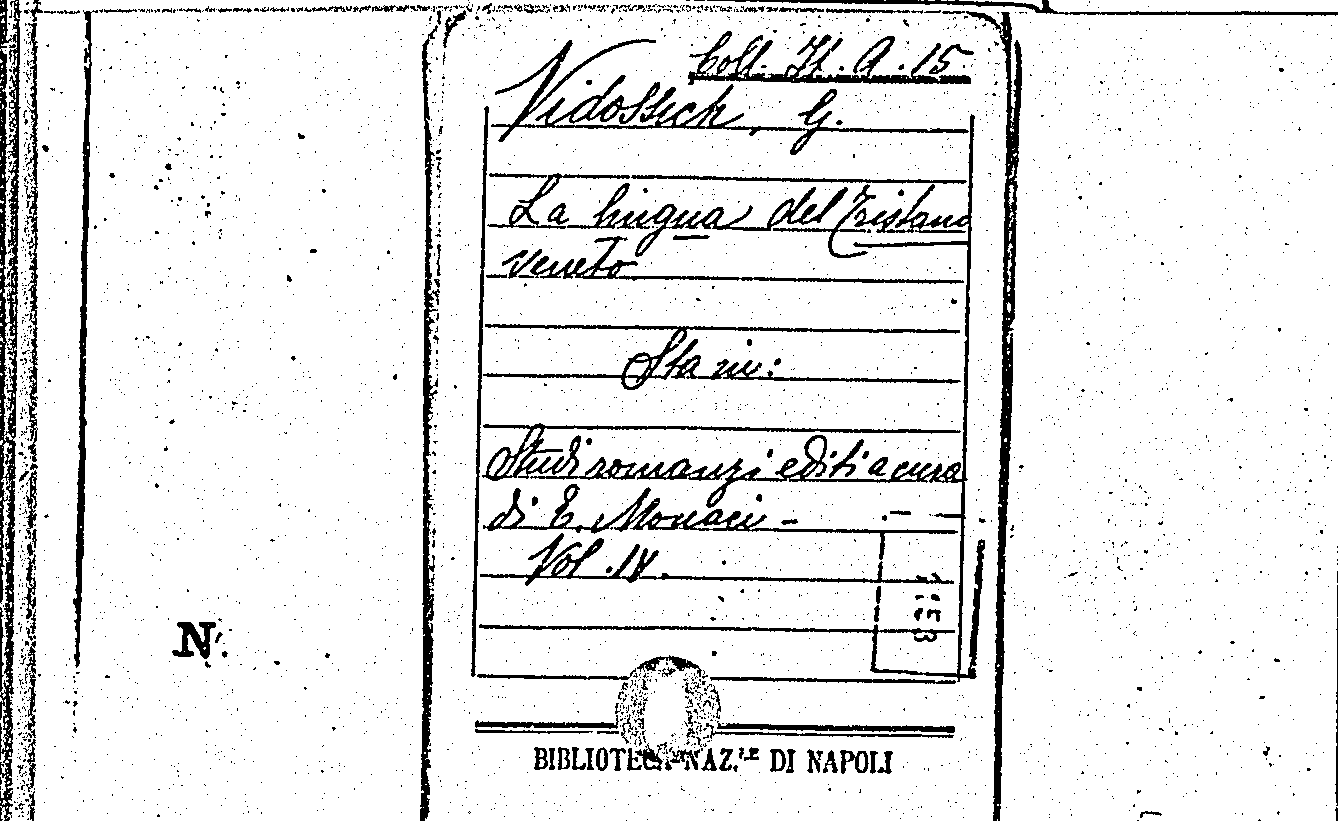 Coll. It. A. 15.
Vidossich, G.
La lingua del Tristano
veneto
Sta in:
Studi romanzi editi a cura
di E. Monaci -
Vol. IV.
N.
BIBLIOTECA NAZ.LE DI NAPOLI